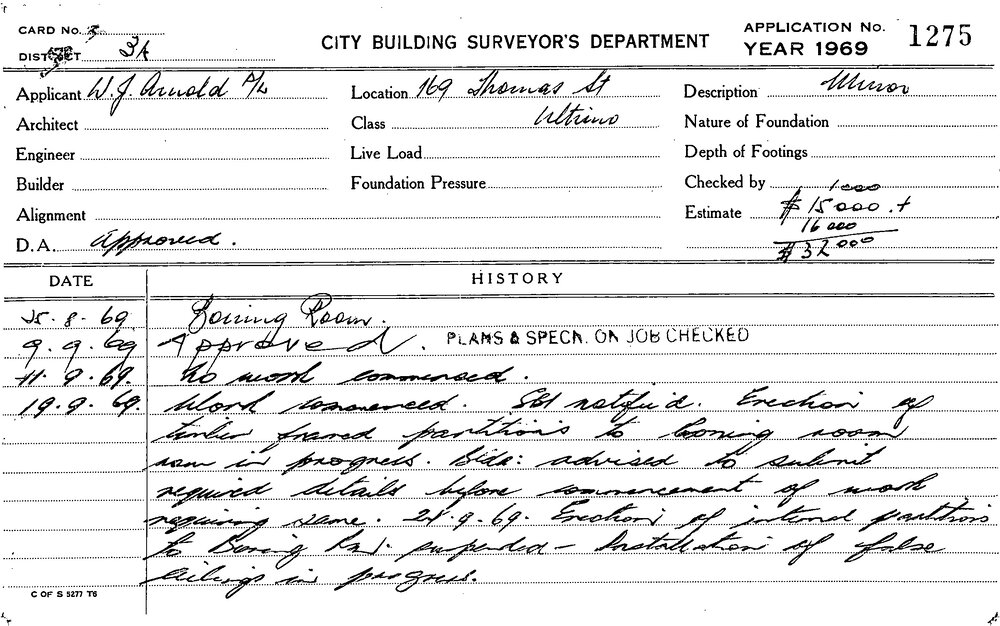 CARD No. 3
DISTRICT 3A
CITY BUILDING SURVEYOR'S DEPARTMENT
APPLICATION No. 1275
YEAR 1969
Applicant W. J. Arnold P/L
Location 169 Thomas St
Description Minor
Architect
Class Ultimo
Nature of Foundation
Engineer
Live Load
Depth of Footings
Builder
Foundation Pressure
Checked by
Alignment
Estimate 1000
$15000.+
16000
$32000
D.A. Approved.
DATE HISTORY
25. 8. 69 Boning Room.
9. 9. 69 Approved. PLANS & SPECN. ON JOB CHECKED
11. 9. 69. No work commenced.
19. 9. 69. Work commenced. notified. Erection of
timber framed partitions to boning room
now in progress. Bldr: advised to submit
required details before commencement of work
requiring same. 9. 69. Erection of internal partitions
to Boning Rm. suspended - Installation of false
ceilings in progress.
C OF S 5277 T6